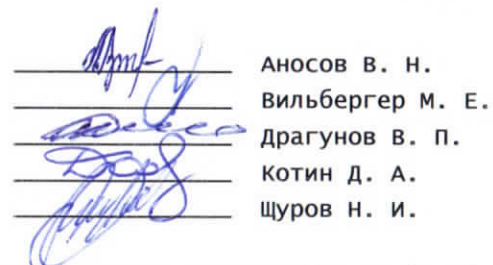 Аносов В. Н.
Вильбергер М. Е.
Драгунов В. П.
Котин Д. А.
Щуров Н. И.